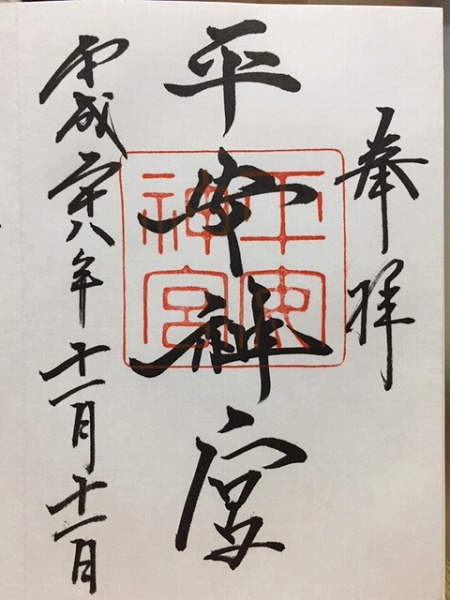 奉拝
平安神宮
平成二十八年十一月十一日
平安神宮